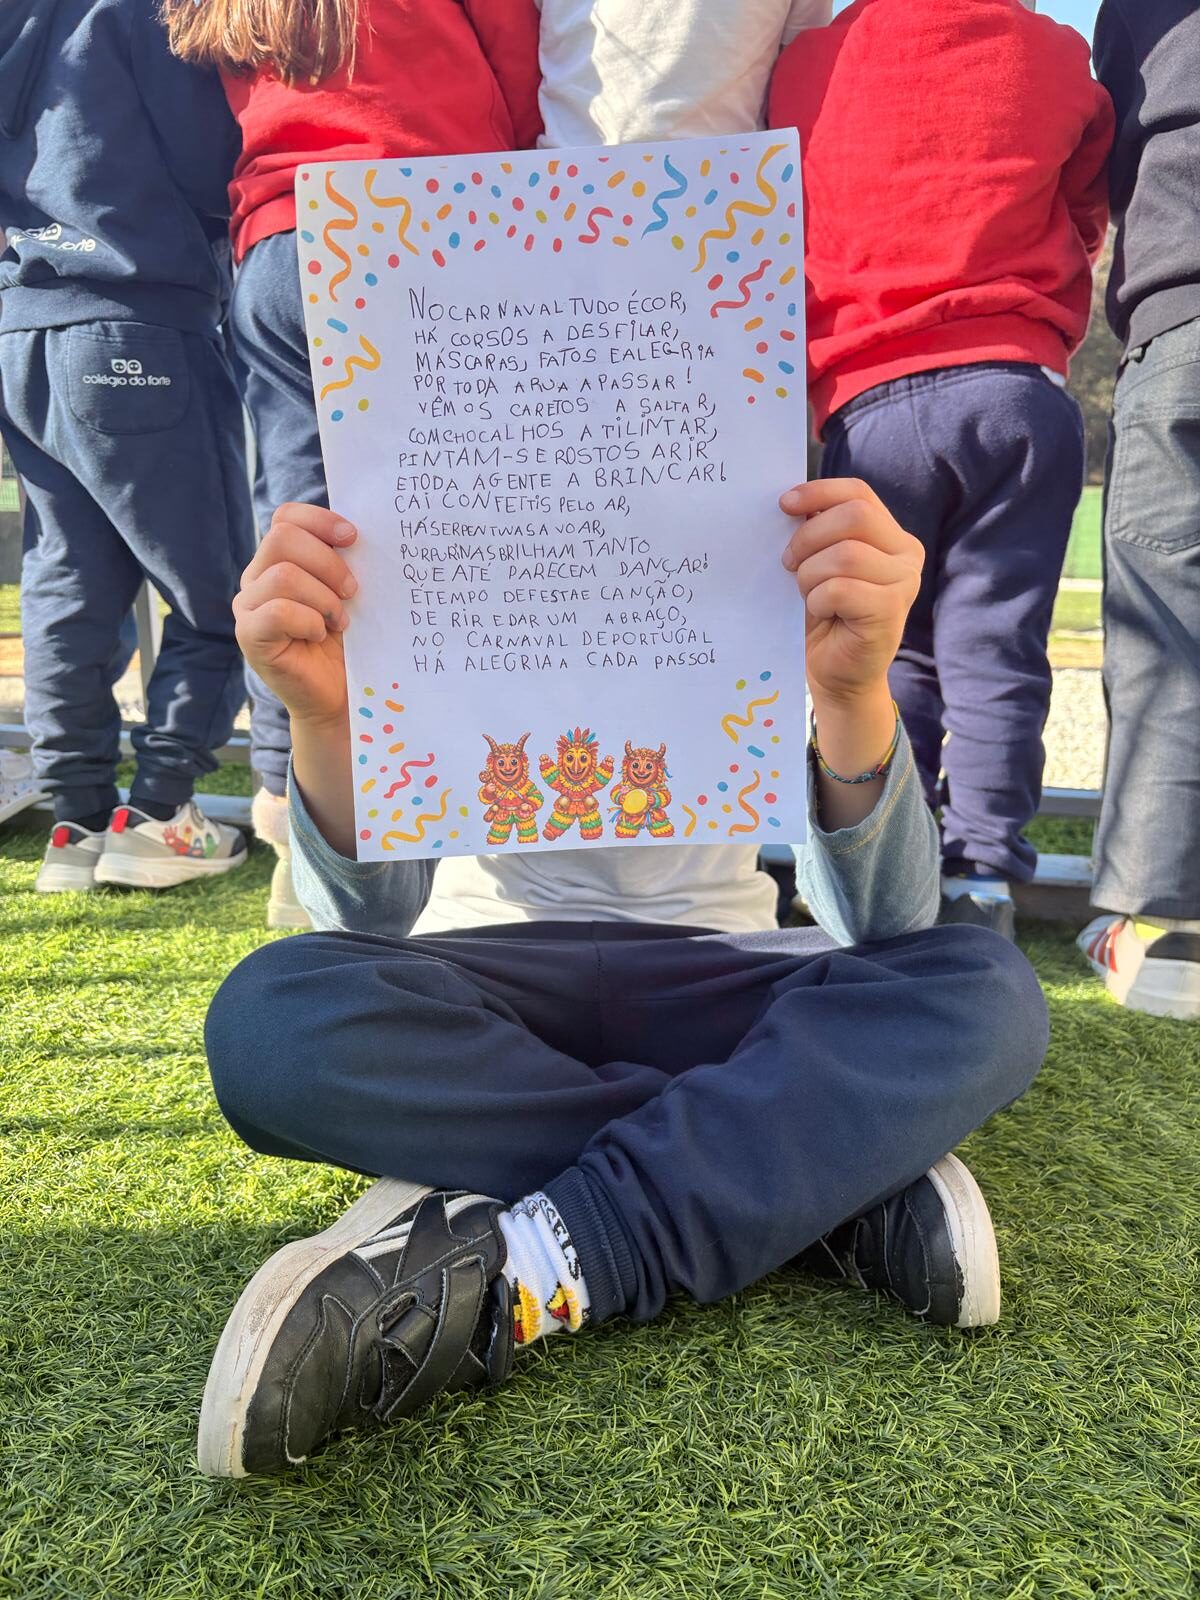 colégio do forte
NO CARNAVAL TUDO É COR,
HÁ CORSOS A DESFILAR,
MÁSCARAS, FATOS E ALEGRIA
POR TODA A RUA A PASSAR!
VÊM OS CARETOS A SALTAR,
COM CHOCALHOS A TILINTAR,
PINTAM-SE ROSTOS A RIR
E TODA A GENTE A BRINCAR!
CAI CONFETTIS PELO AR,
HÁ SERPENTINAS A VOAR,
PURPURINAS BRILHAM TANTO
QUE ATÉ PARECEM DANÇAR!
E TEMPO DE FESTA E CANÇÃO,
DE RIR E DAR UM ABRAÇO,
NO CARNAVAL DE PORTUGAL
HÁ ALEGRIA A CADA PASSO!